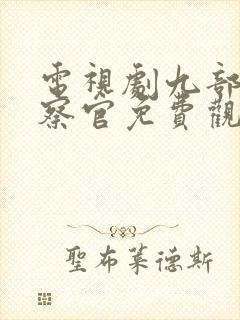 電視劇九部
察官免費觀
聖布萊德斯